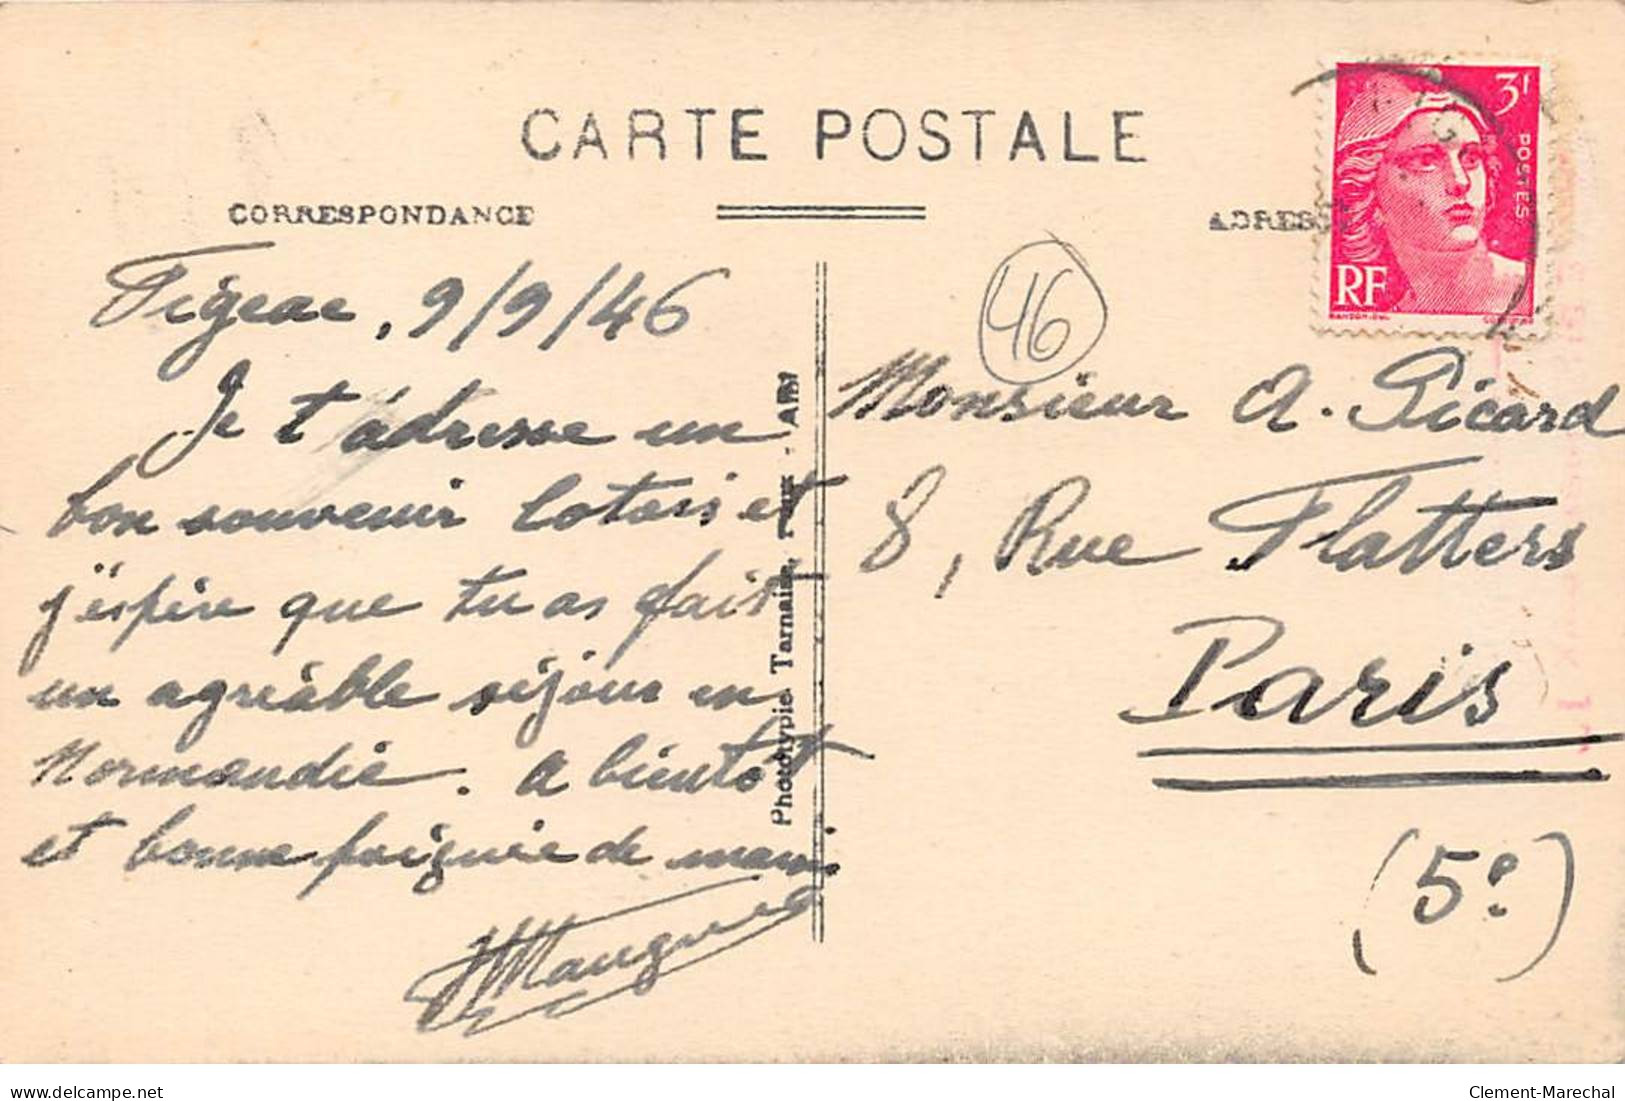 CARTE POSTALE
CORRESPONDANCE
Figeac, 9/9/46
Je t'adresse un
bon souvenir lotois et
j'espère que tu as fait
un agréable séjour en
Normandie. a bientôt
et bonne poignée de main.
Phototypie Tarnaise, Poux - Albi
ADRESSE
3F
POSTES
RF
46
Monsieur A. Picard
8, Rue Flatters
Paris
(5e)
delcampe.net
Clement-Marechal